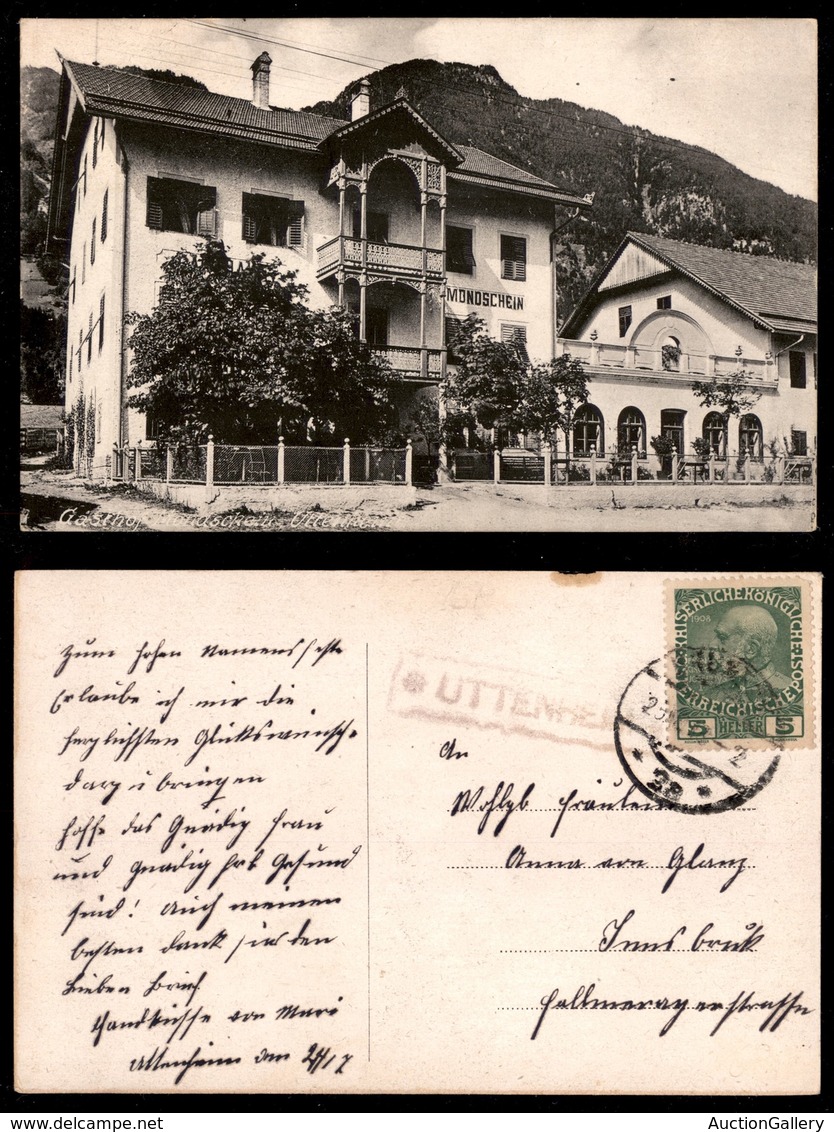 MONDSCHEIN
Gasthof Mondschein Uttenheim
Zum hohen Namensfeste
Erlaube ich mir die
herzlichsten Glückswünsch-
darzubringen
hoffe das Gnädig Frau
und gnädig Frl Gesund
sind! Auch meinen
besten Dank für den
Lieben Brief
Handküsse von Mari
Uttenheim den 24/7
* UTTENHEI
KAISERLICHE KÖNIGLICHE
1908
5 HELLER 5
An
Wohlgb Fräulein
Anna von Glanz
Innsbruk
Fallmerayerstrasse
AuctionGallery